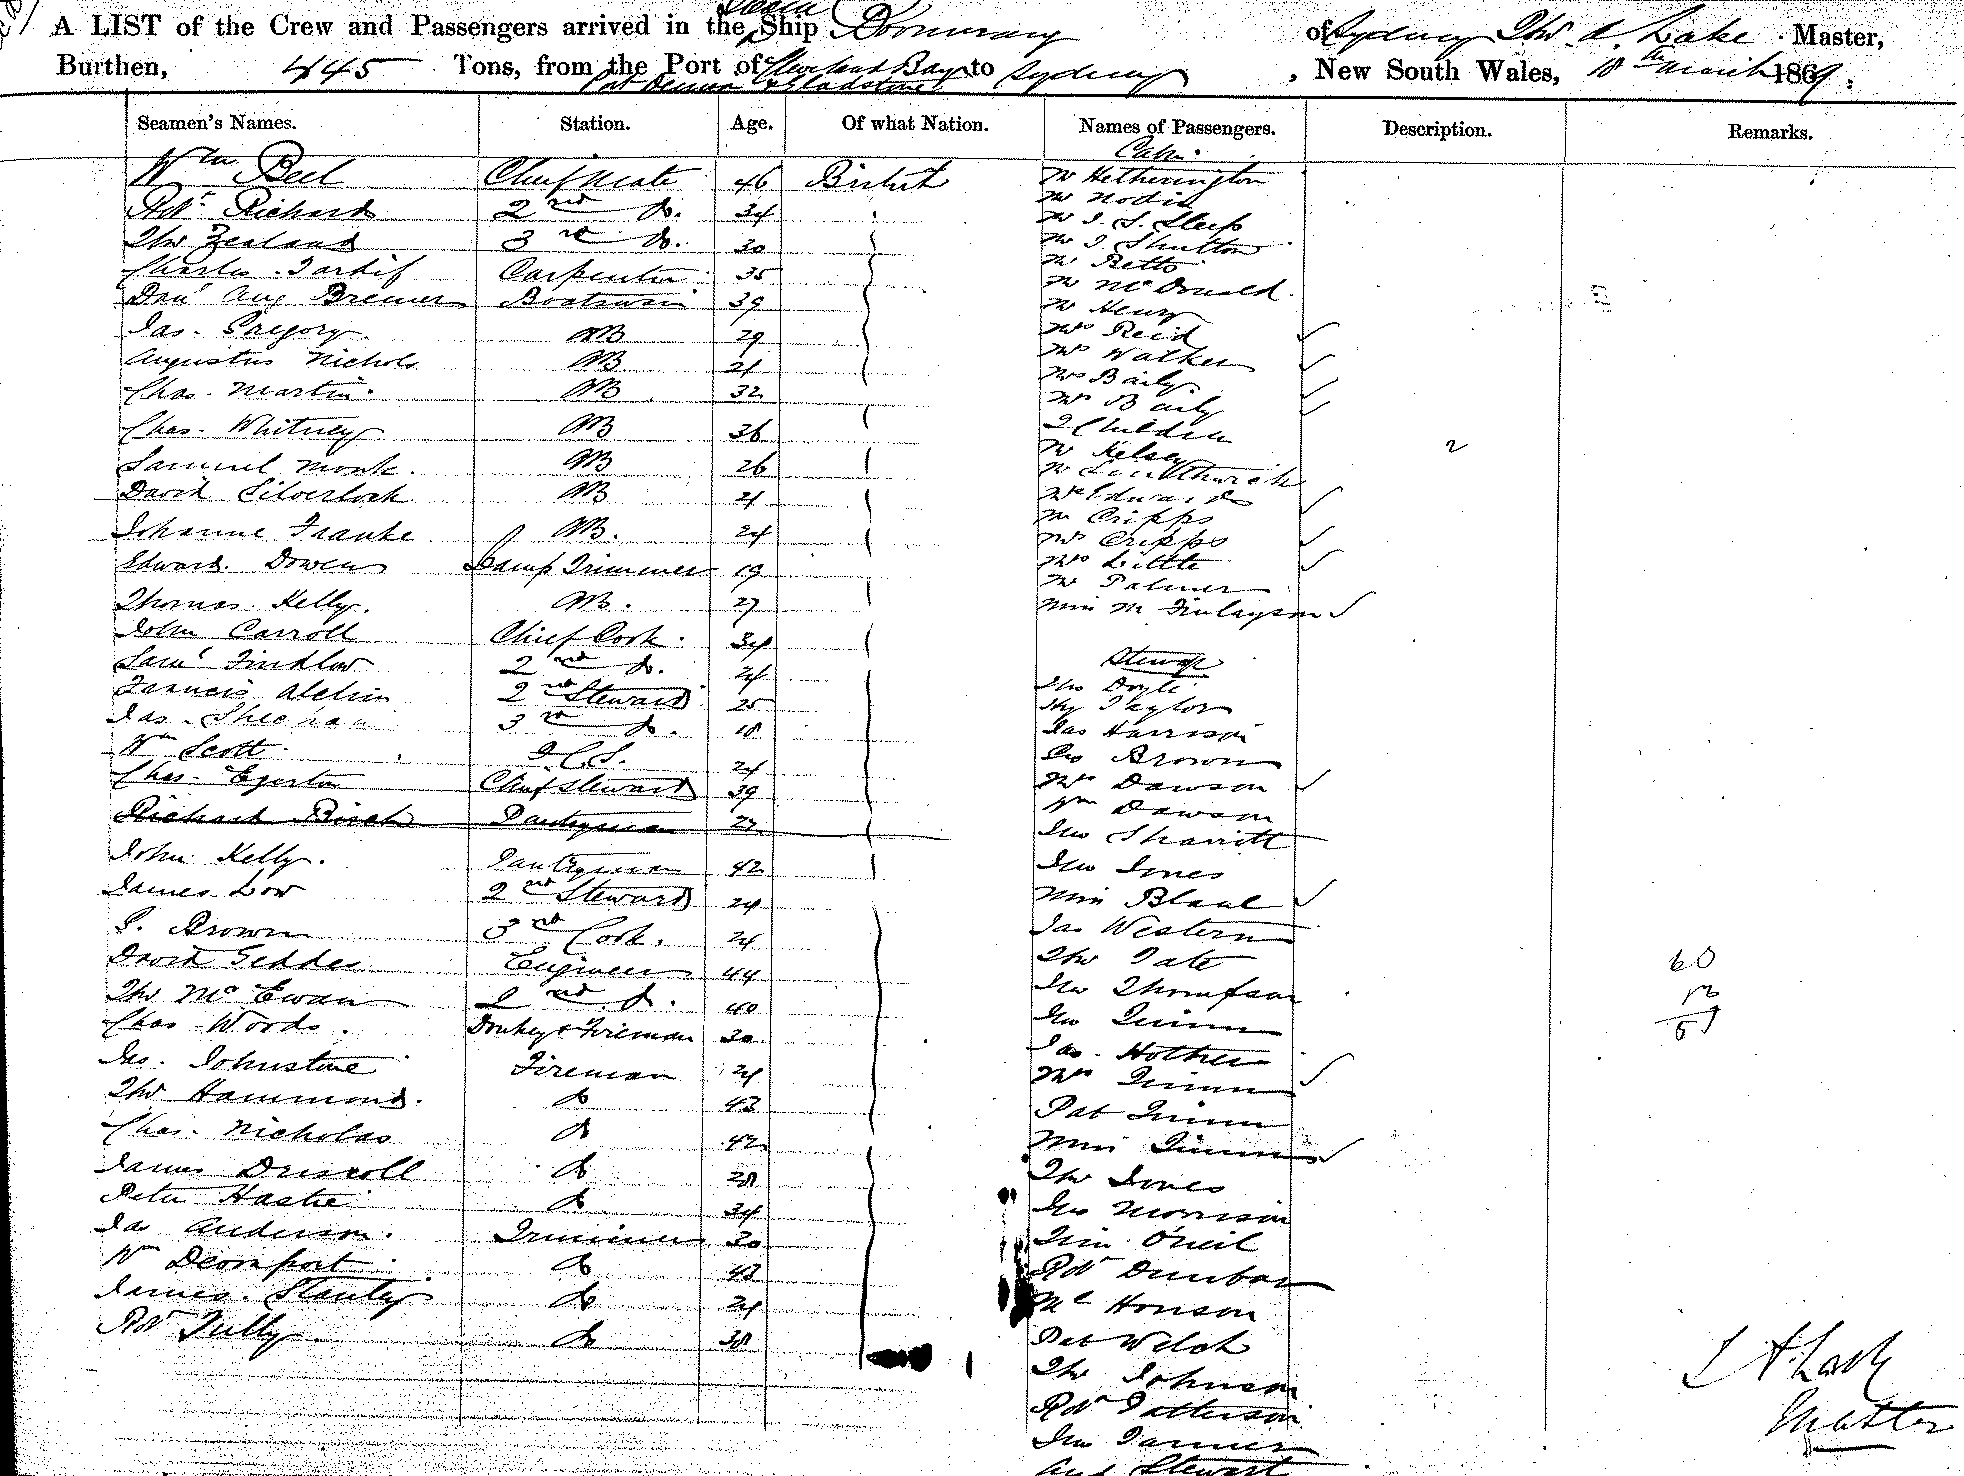 A LIST of the Crew and Passengers arrived in the Ship Boomerang of Sydney Thos A. Lake Master,
Burthen, 445 Tons, from the Port of Cleveland Bay to Sydney, New South Wales, 10th March 1869.
Port Denison & Gladstone
Seamen's Names. Station. Age. Of what Nation. Names of Passengers. Description. Remarks.
Wm Bell Chief Mate 46 British
Robt Richard 2nd Do. 34
Thos Zealand 3rd Do. 30
Charles Tardif Carpenter 35
Danl Aug Bremer Boatswain 39
Jas. Gregory AB 29
Augustus Nichols AB 21
Chas. Martin AB 32
Chas. Whitney AB 36
Samuel Monk. AB 26
David Silverlock AB 21
Johanne Franke AB. 24
Edward Dowen Lamp Trimmer 19
Thomas Kelly. AB. 27
John Carroll Chief Cook. 34
Saml Findlow 2nd Do. 24
Francis Alchin 2nd Steward 25
Jas. Sheehan 3rd Do. 18
Wm Scott 24
Chas. Egerton Chief Steward 39
Richard Birch Pantryman 27
John Kelly. Pantryman 42
James Low 2nd Steward 24
G. Brown 3rd Cook. 24
David Geddes Engineer 44
Thos McEwan 2nd Do. 40
Chas Woods. Donkey & Fireman 30
Jas. Johnstone Fireman 24
Thos Hammond. Do 43
Chas. Nicholas Do 42
James Driscoll Do 28
Peter Hastie Do 34
Jas Anderson. Trimmer 30
W Do 43
James Stanley Do 24
Robt Tully Do 38
Cabin
Mr Hetherington
Mr
Mr J. S. Sleep
Mr J. Shutton
Mr Betts
Mr McDonald.
Mr Henry
Mrs Reid
Mrs Walker
Mrs Baily
Mrs Baily
2 Children 2
Mr Kelsey
Mr
Mrs Edwards
Mr Cripps
Mrs Cripps
Mrs Little
Mr Palmer
Miss M Finlayson
Steerage
Thos Doyle
Hy Taylor
Jas Harrison
Geo Brown
Mrs Dawson
Wm Dawson
Jno Sharritt
Jno Jones
Miss Blaul
Jas Western
Thos Tate
Jno Thompson
Jno Quinn
Jas. Hother
Mrs Quinn
Pat Quinn
Miss Quinn
Thos Jones
Jno Morrison
Tim Oneil
Robt Dunbar
Ml Honson
Pat Welch
Thos Johnson
Robt Patterson
Jno Tanner
And Stewart
60
Master